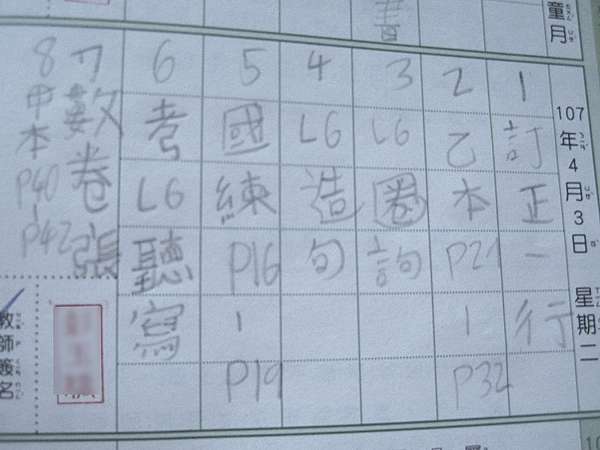 107年4月3日 星期二
1 訂正一行
2 乙本P21|P32
3 L6圈詞
4 L6造句
5 國練P16|P19
6 考L6聽寫
7 數卷張
8 甲本P40|P42
教師簽名